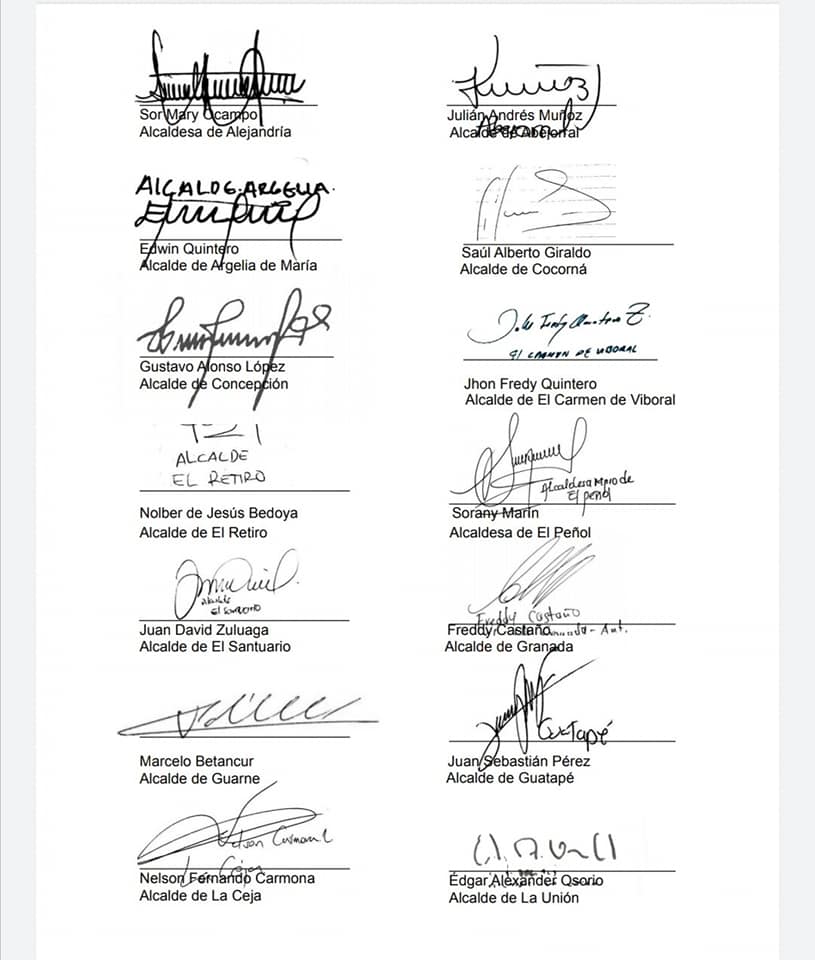 Sor Mary Ocampo
Alcaldesa de Alejandría
Julián Andrés Muñoz
Alcalde de Abejorral
AlCALDE. ARGELIA.
Edwin Quintero
Alcalde de Argelia de María
Saúl Alberto Giraldo
Alcalde de Cocorná
Gustavo Alonso López
Alcalde de Concepción
El CARMEN DE VIBORAL
Jhon Fredy Quintero
Alcalde de El Carmen de Viboral
ALCALDE
EL RETIRO
Nolber de Jesús Bedoya
Alcalde de El Retiro
Alcaldesa Mpio de
El peñol
Sorany Marín
Alcaldesa de El Peñol
Alcalde
El Santuario
Juan David Zuluaga
Alcalde de El Santuario
Freddy Castaño
Freddy Castaño
Alcalde de Granada
Marcelo Betancur
Alcalde de Guarne
Guatapé
Juan Sebastián Pérez
Alcalde de Guatapé
Nelson Carmona C
La Ceja
Nelson Fernando Carmona
Alcalde de La Ceja
Édgar Alexánder Osorio
Alcalde de La Unión